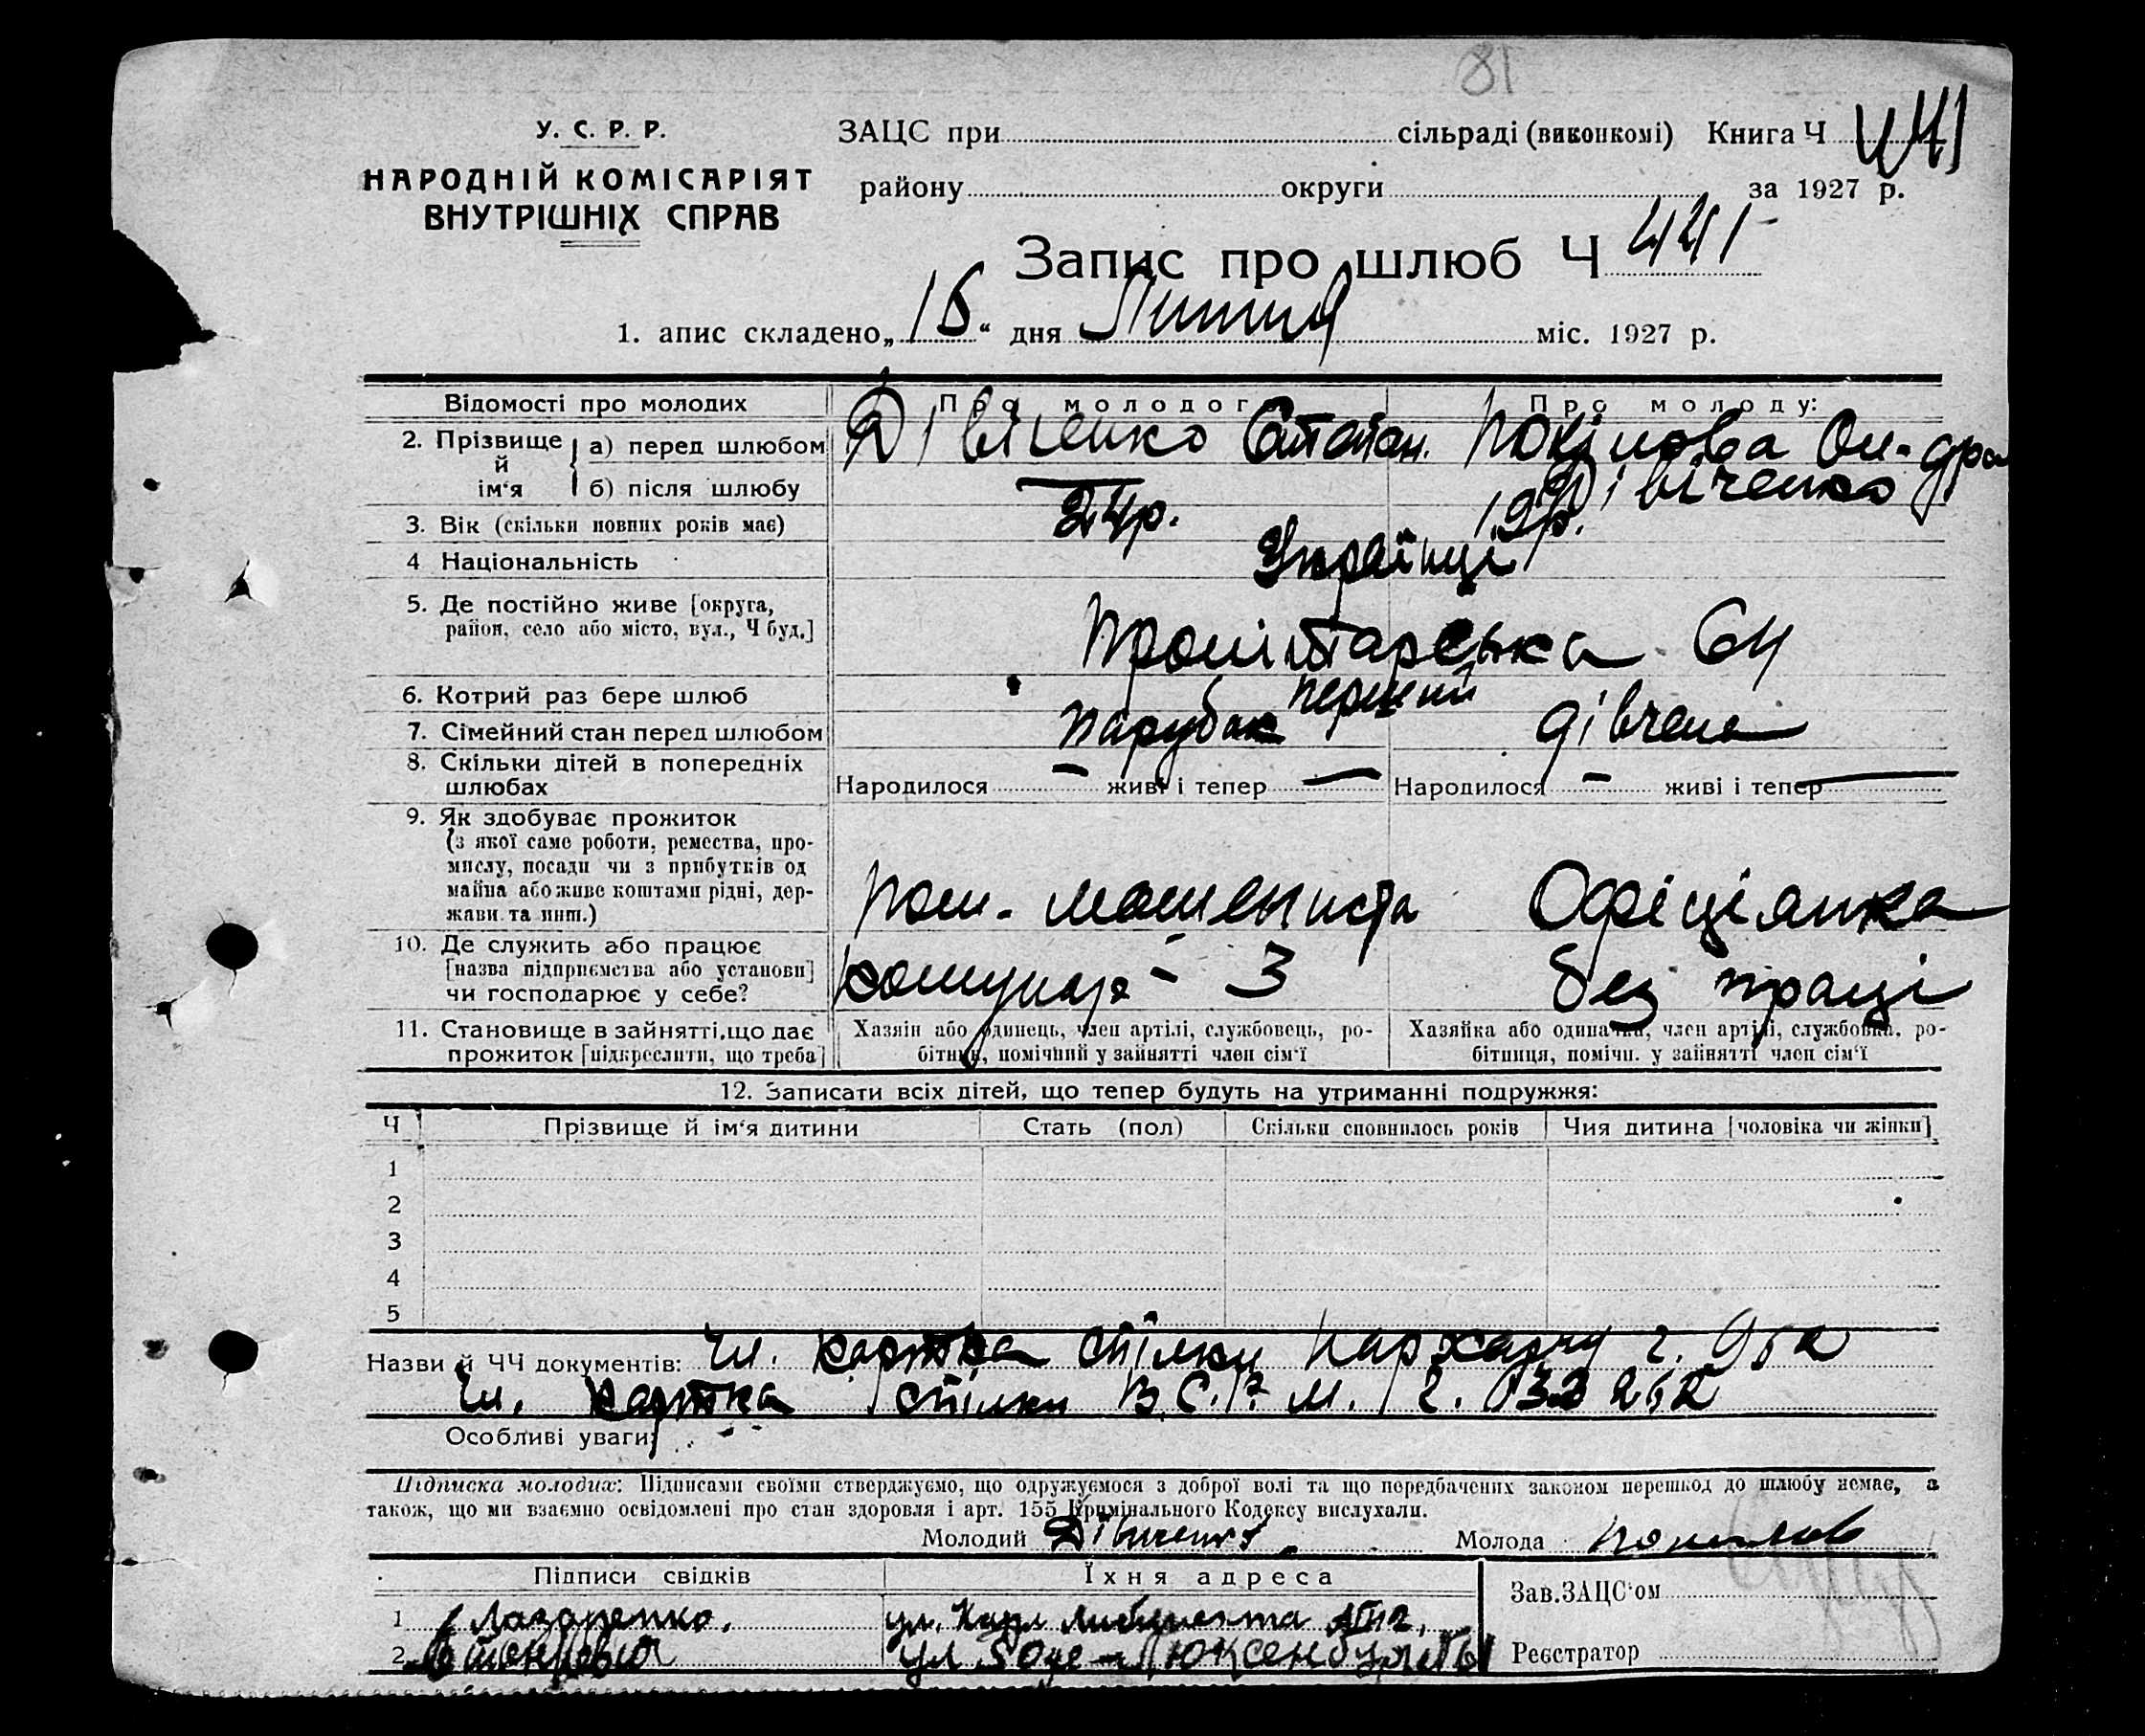 81
У. С. Р. Р.
НАРОДНІЙ КОМІСАРІЯТ
ВНУТРІШНІХ СПРАВ
ЗАЦС при сільраді (виконкомі) Книга Ч 441
району округи за 1927 р.
Запис про шлюб Ч 441
1. апис складено „ “ дня Липня міс. 1927 р.
Відомості про молодих Про молодог Про молоду:
2. Прізвище й ім‘я
а) перед шлюбом Дівіченко Степан.
б) після шлюбу — Дівіченко
3. Вік (скільки повних років має) 24р. 19р.
4 Національність Українці
5. Де постійно живе [округа, район, село або місто, вул., Ч буд.] Пролітарська 64
6. Котрий раз бере шлюб перший
7. Сімейний стан перед шлюбом парубок дівчена
8. Скільки дітей в попередніх шлюбах Народилося — живі і тепер — Народилося — живі і тепер —
9. Як здобуває прожиток
(з якої саме роботи, ремества, про-
мислу, посади чи з прибутків од
майна або живе коштами рідні, дер-
жави та инш.)
пом. машиніста Офіціянка
10. Де служить або працює
[назва підприємства або установи]
чи господарює у себе?
без праці
11. Становище в зайнятті, що дає
прожиток [підкреслити, що треба]
Хазяін або одинець, член артілі, службовець, ро-
бітник, помічний у зайнятті член сім‘ї
Хазяйка або одиначка, член артілі, службовка, ро-
бітниця, помічн. у зайнятті член сім‘ї
12. Записати всіх дітей, що тепер будуть на утриманні подружжя:
Ч Прізвище й ім‘я дитини Стать (пол) Скільки сповнилось років Чия дитина [чоловіка чи жінки]
1
2
3
4
5
Назви й ЧЧ документів: Чл. картка спілки Нархарчу
Чл. картка спілки
Особливі уваги:
Підписка молодих: Підписами своїми стверджуємо, що одружуємося з доброї волі та що передбачених законом перешкод до шлюбу немає, а
також, що ми взаємно освідомлені про стан здоровля і арт. 155 Кримінального Кодексу вислухали.
Молодий Молода
Підписи свідків Їхня адреса
1 Лазаренко, ул. Карл Либкнехта
2 ул Розе-Люксенбург
Зав. ЗАЦС‘ом
Реєстратор